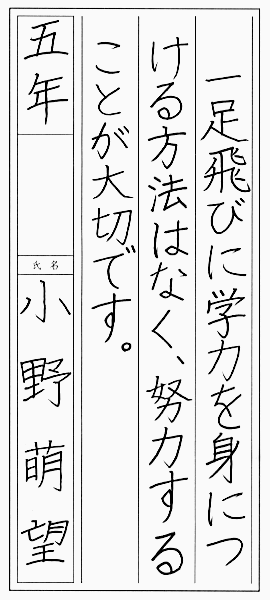 一足飛びに学力を身につ
ける方法はなく、努力する
ことが大切です。
五年
氏名
小野萌望